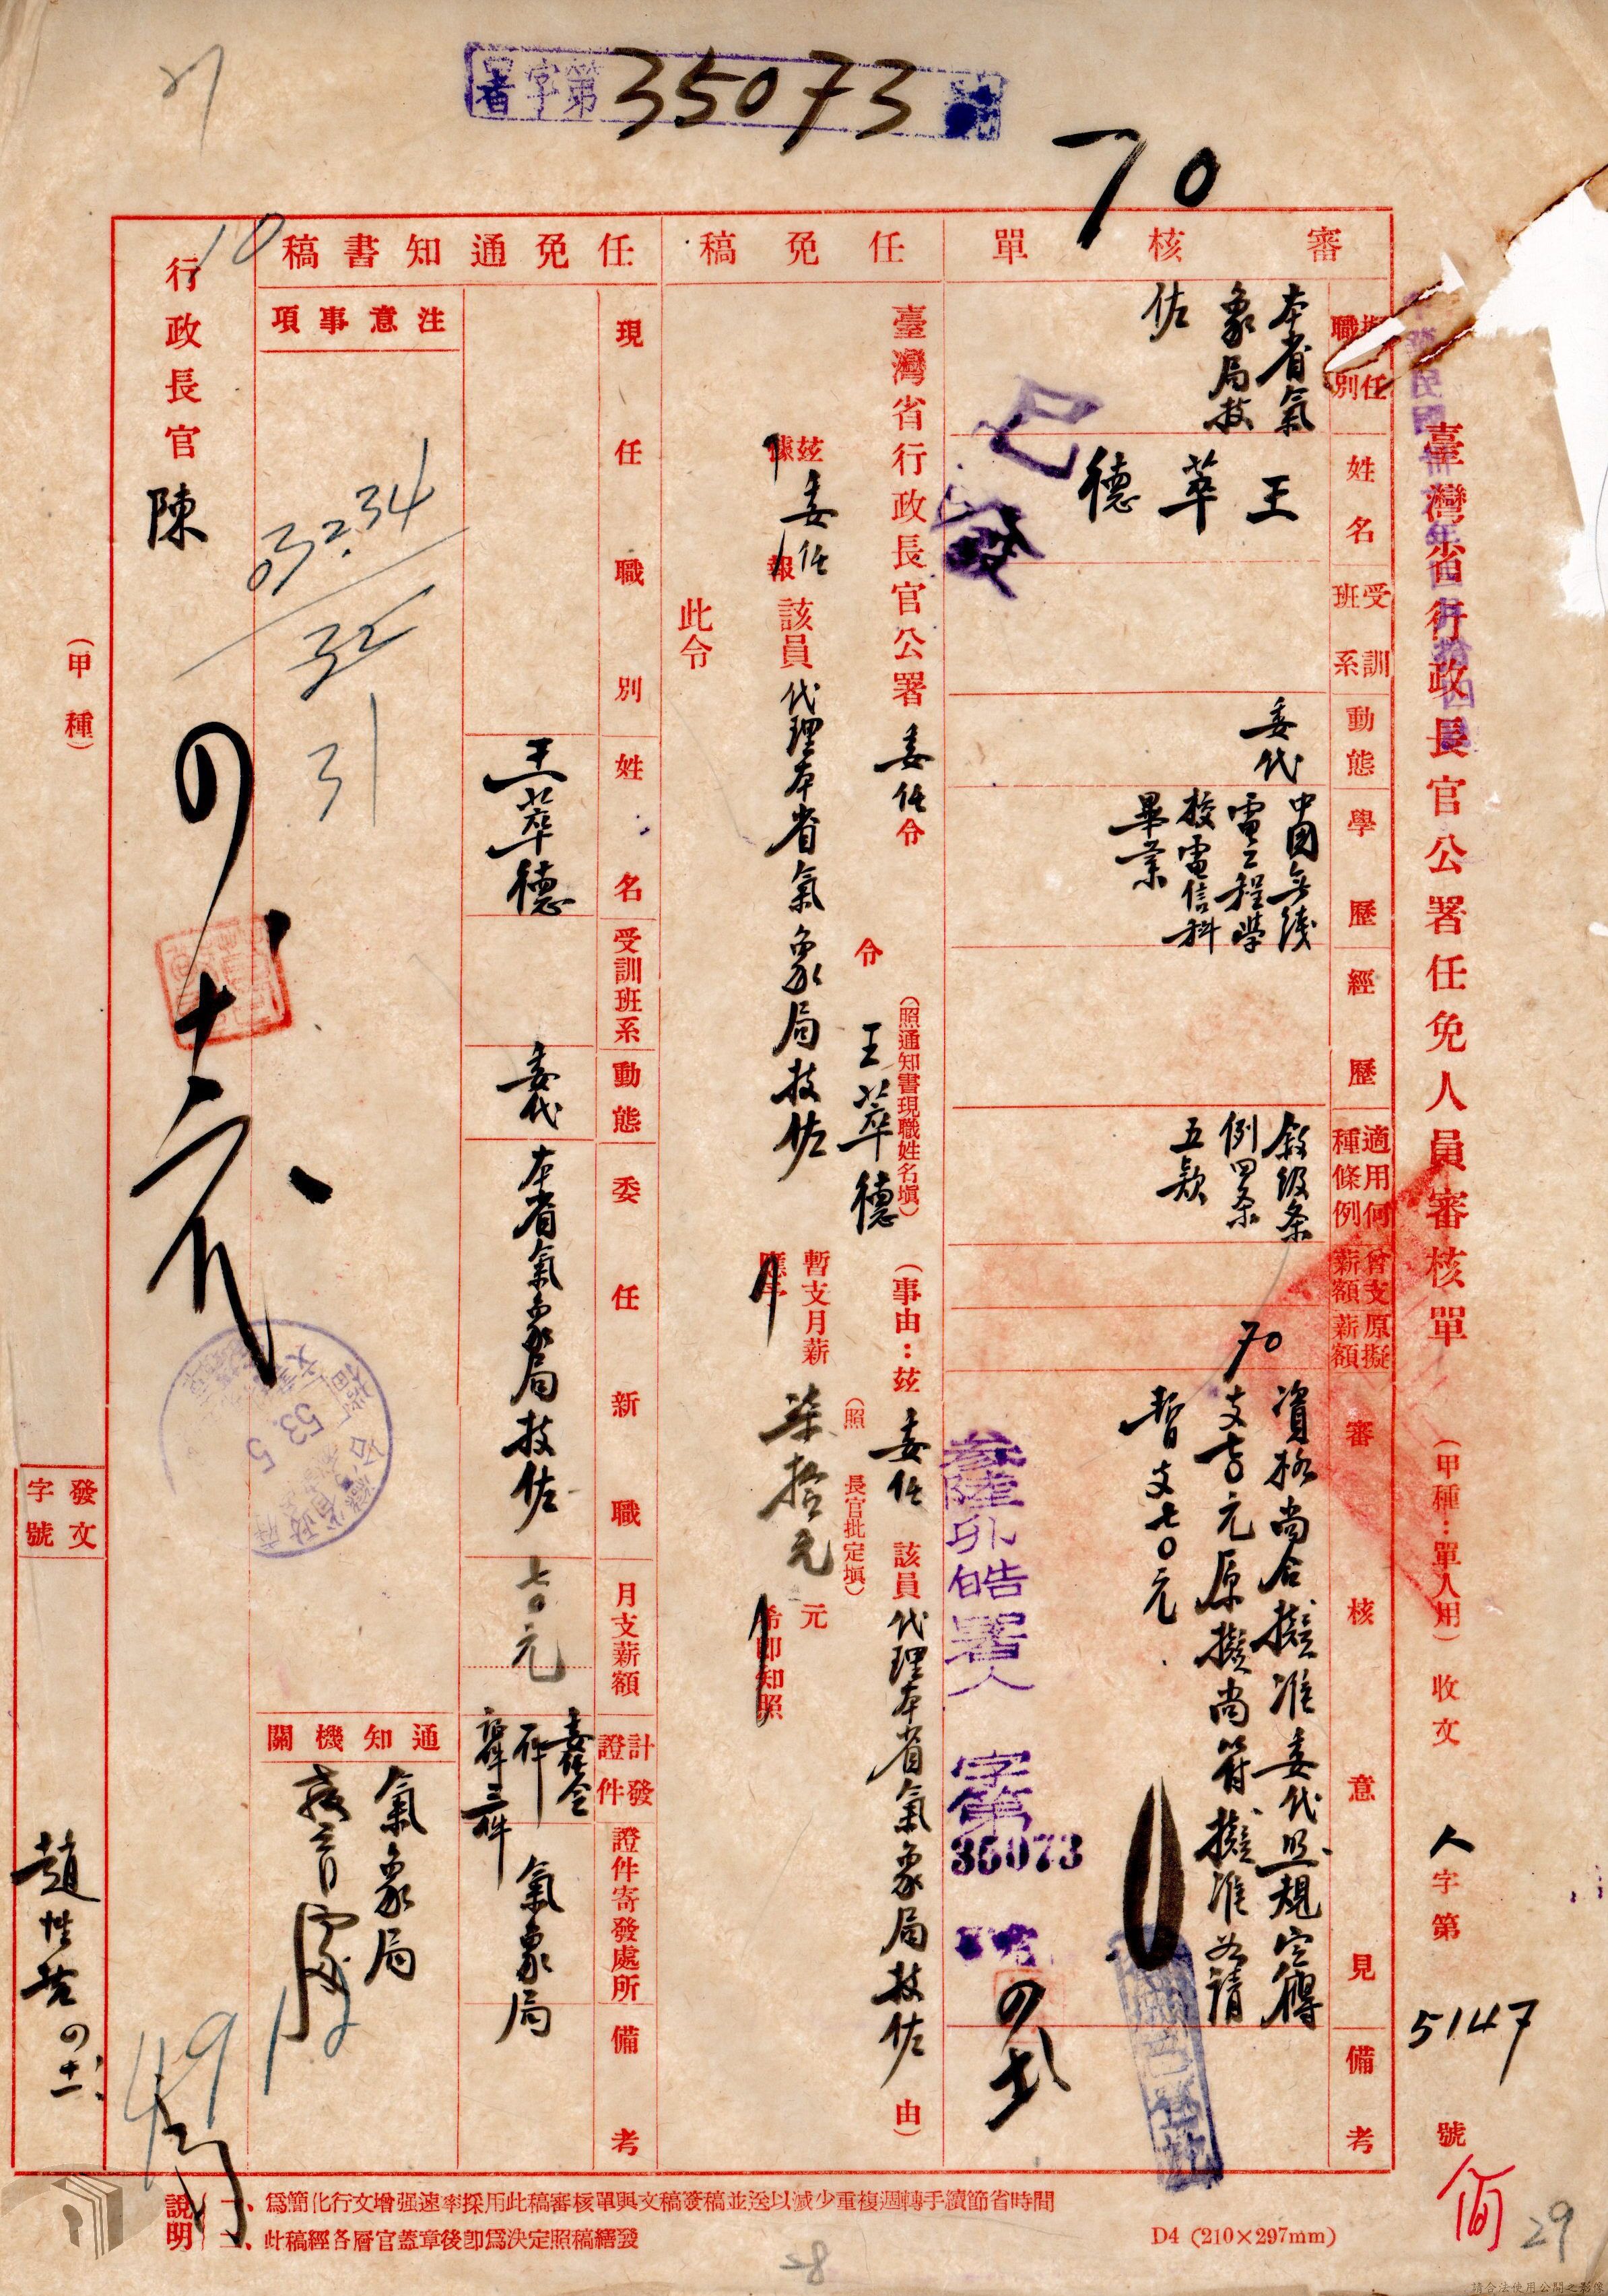 署字第35073號
70
臺灣省行政長官公署任免人員審核單
(甲種：單人用)
收文
人字第5147號
審核單
擬任職別
姓名
受訓班系
動態
學歷
經歷
適用何種條例
曾支薪額
原擬薪額
審核意見
備考
本省氣
象局技
佐
王萃德
委代
中國無綫
電工程學
校電信科
畢業
敘級条
例四条
五款
70
資格尚合擬准委代照規定得
支
元原擬尚符擬准如請
暫支七〇元
已發
叁陸卯皓署人
字第
35073
任免稿
臺灣省行政長官公署委任令
(事由：茲委任該員代理本省氣象局技佐由)
(照通知書現職姓名填)
令王萃德
(照長官批定填)
茲委任該員代理本省氣象局技佐暫支月薪柒拾元元
據報
應予
希即知照
此令
任免通知書稿
現任職別
姓名
受訓班系
動態
委任新職
月支薪額
計發證件
證件寄發處所
備考
王萃德
委代
本省氣象局技佐
七〇元
委任令
証件三件
氣象局
注意事項
通知機關
氣象局
32.34
32
31
行政長官陳
10
(甲種)
發文字號
491
說明
一、爲簡化行文增强速率採用此稿審核單與文稿簽稿並送以減少重複週轉手續節省時間
二、此稿經各層官蓋章後卽爲決定照稿繕發
D4 (210×297mm)
28
29
請合法使用公開之影像